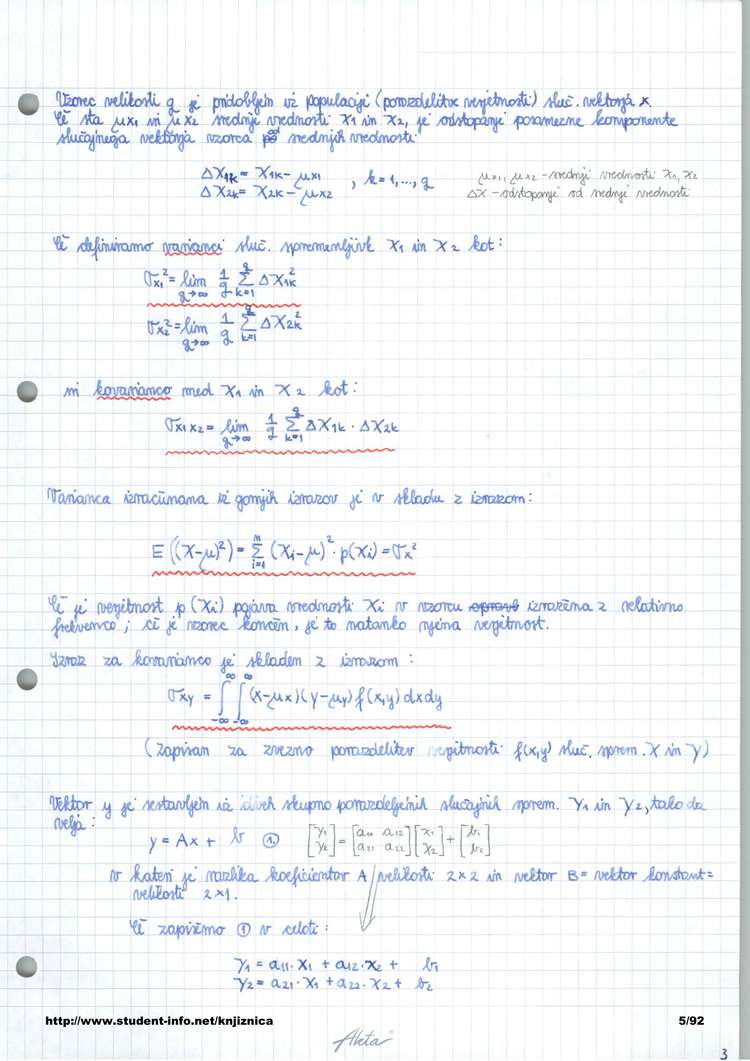 Vzorec velikosti q je pridobljen iz populacije (porazdelitve verjetnosti) sluč. vektorja x.
Če sta μx1 in μx2 srednji vrednosti x1 in x2, je odstopanje posamezne komponente
slučajnega vektorja vzorca od srednjih vrednosti
ΔX1k = X1k - μx1
ΔX2k = X2k - μx2 , k = 1, ..., q
μx1, μx2 - srednji vrednosti x1, x2
ΔX - odstopanje od srednje vrednosti
Če definiramo varianci sluč. spremenljivk X1 in X2 kot:
σx1² = lim q→∞ 1/q Σ k=1 q ΔX1k²
σx2² = lim q→∞ 1/q Σ k=1 q ΔX2k²
in kovarianco med X1 in X2 kot:
σx1x2 = lim q→∞ 1/q Σ k=1 q ΔX1k · ΔX2k
Varianca izračunana iz gornjih izrazov je v skladu z izrazom:
E((X-μ)²) = Σ i=1 n (Xi-μ)² · p(Xi) = σx²
Če je verjetnost p(Xi) pojava vrednosti Xi v vzorcu izražena z relativno
frekvenco; če je vzorec končen, je to natanko njena verjetnost.
Izraz za kovarianco je skladen z izrazom:
σxy = ∫ -∞ ∞ ∫ -∞ ∞ (x-μx)(y-μy) f(x,y) dx dy
(zapisan za zvezno porazdelitev verjetnosti f(x,y) sluč. sprem. X in Y)
Vektor y je sestavljen iz dveh skupno porazdeljenih slučajnih sprem. Y1 in Y2, tako da
velja:
y = Ax + b ① [y1 y2] = [a11 a12 a21 a22][x1 x2] + [b1 b2]
v kateri je matrika koeficientov A velikosti 2x2 in vektor B = vektor konstant =
velikosti 2x1.
Če zapišemo ① v celoti:
Y1 = a11·X1 + a12·X2 + b1
Y2 = a21·X1 + a22·X2 + b2
http://www.student-info.net/knjiznica 5/92
3